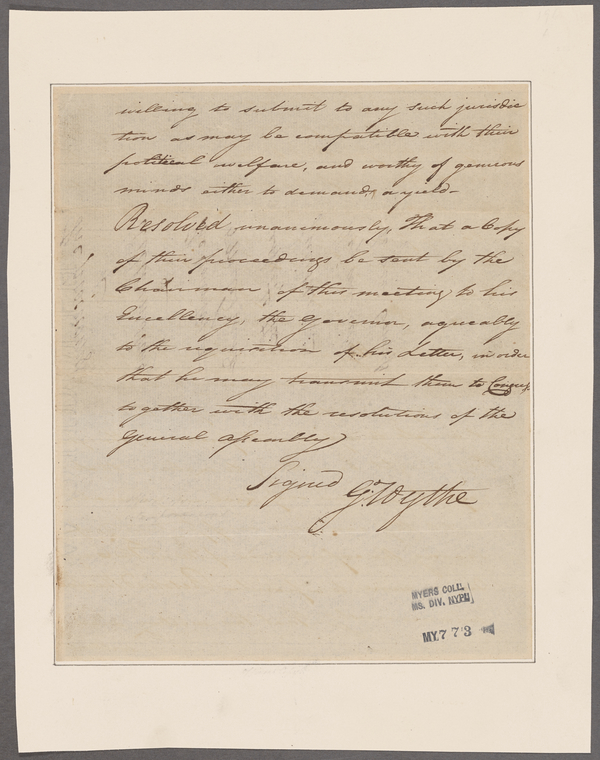 willing to submit to any such jurisdic
tion as may be compatible with their
political welfare, and worthy of generous
minds either to demand, or yield-
Resolved unanimously, That a Copy
of their proceedings be sent by the
Chairman of this meeting to his
Excellency, the Governor, agreeably
to the requisition of his Letter, in order
that he may transmit them to Congress,
together with the resolutions of the
General Assembly
Signed G. Wythe
MYERS COLL.
MS. DIV. NYPL
MY. 773